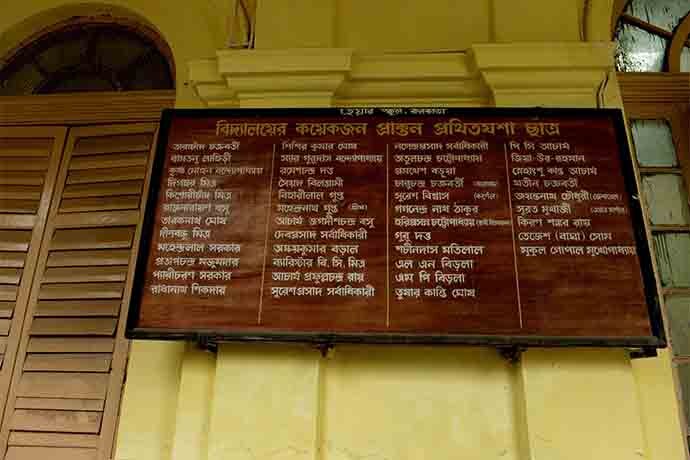 হেয়ার স্কুল, কলকাতা
বিদ্যালয়ের কয়েকজন প্রাক্তন প্রথিতযশা ছাত্র
তারাচাঁদ চক্রবর্তী
রামতনু লাহিড়ী
কৃষ্ণ মোহন বন্দ্যোপাধ্যায়
দিগম্বর মিত্র
কিশোরীচাঁদ মিত্র
রাজনারায়ণ বসু
তারকনাথ ঘোষ
দীনবন্ধু মিত্র
মহেন্দ্রলাল সরকার
প্রতাপচন্দ্র মজুমদার
প্যারীচরণ সরকার
রাধানাথ শিকদার
শিশির কুমার ঘোষ
স্যার গুরুদাস বন্দ্যোপাধ্যায়
রমেশচন্দ্র দত্ত
সৈয়দ বিলগ্রামী
বিহারীলাল গুপ্ত
মহেন্দ্রনাথ গুপ্ত (শ্রীম)
আচার্য জগদীশচন্দ্র বসু
দেবপ্রসাদ সর্বাধিকারী
অক্ষয়কুমার বড়াল
ব্যারিস্টার বি. সি. মিত্র
আচার্য প্রফুল্লচন্দ্র রায়
সুরেশপ্রসাদ সর্বাধিকারী
নগেন্দ্রপ্রসাদ সর্বাধিকারী
অতুলচন্দ্র চট্টোপাধ্যায়
প্রমথেশ বড়ুয়া
চারুচন্দ্র চক্রবর্তী
সুরেশ বিশ্বাস (কর্ণেল)
গগনেন্দ্র নাথ ঠাকুর
হরিপ্রসাদ চট্টোপাধ্যায়
গুরু দত্ত
শচীনদাস মতিলাল
এল এন বিড়লা
এম পি বিড়লা
তুষার কান্তি ঘোষ
পি সি আচার্য
জিয়া-উর-রহমান
স্নেহাংশু কান্ত আচার্য
যতীন চক্রবর্তী
জয়ন্তনাথ চৌধুরী (জেনারেল)
সুব্রত মুখার্জী
কিরণ শঙ্কর রায়
তেজেশ (বাঘা) সোম
মুকুল গোপাল মুখোপাধ্যায়